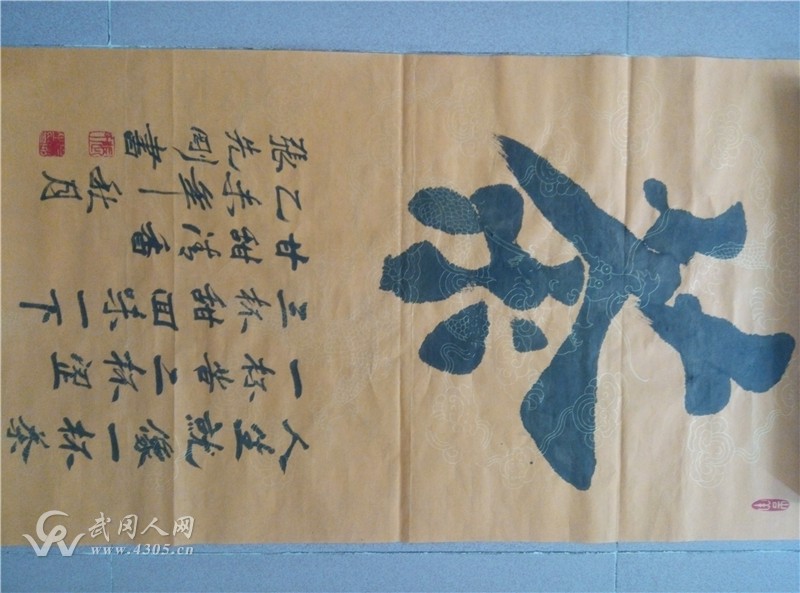 茶
人生就像一杯茶
一杯苦二杯涩
三杯甜回味一下
甘甜清香
乙未年秋月
張先剛書
武冈人网
www.4305.cn